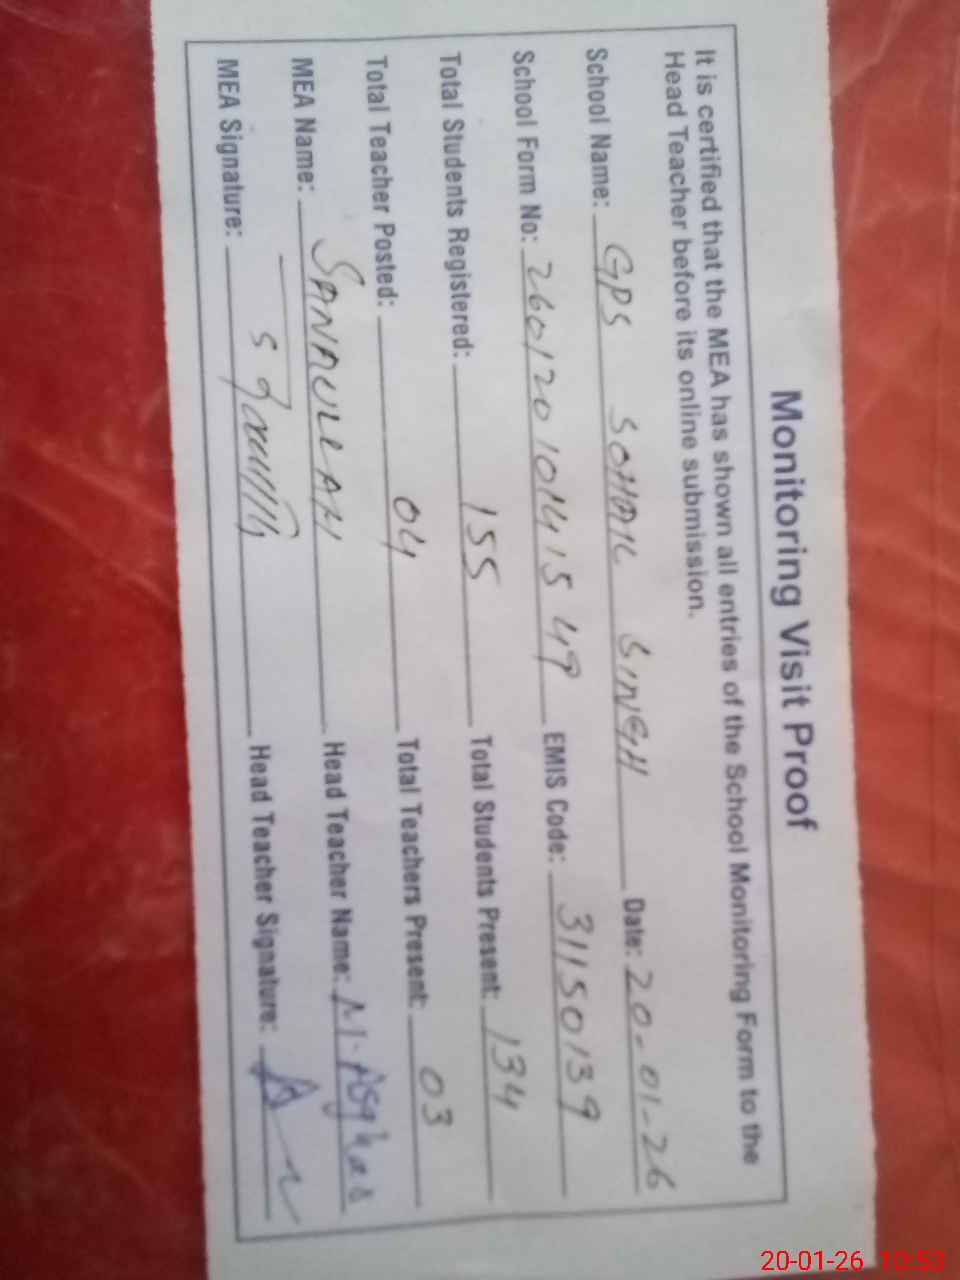 Monitoring Visit Proof
It is certified that the MEA has shown all entries of the School Monitoring Form to the
Head Teacher before its online submission.
School Name: GPS SOHAIL SINGH Date: 20-01-26
School Form No: 26012010141549 EMIS Code: 31150139
Total Students Registered: 155 Total Students Present: 134
Total Teacher Posted: 04 Total Teachers Present: 03
MEA Name: SANAULLAH Head Teacher Name: M. Asghar
MEA Signature: Head Teacher Signature:
20-01-26 10:53